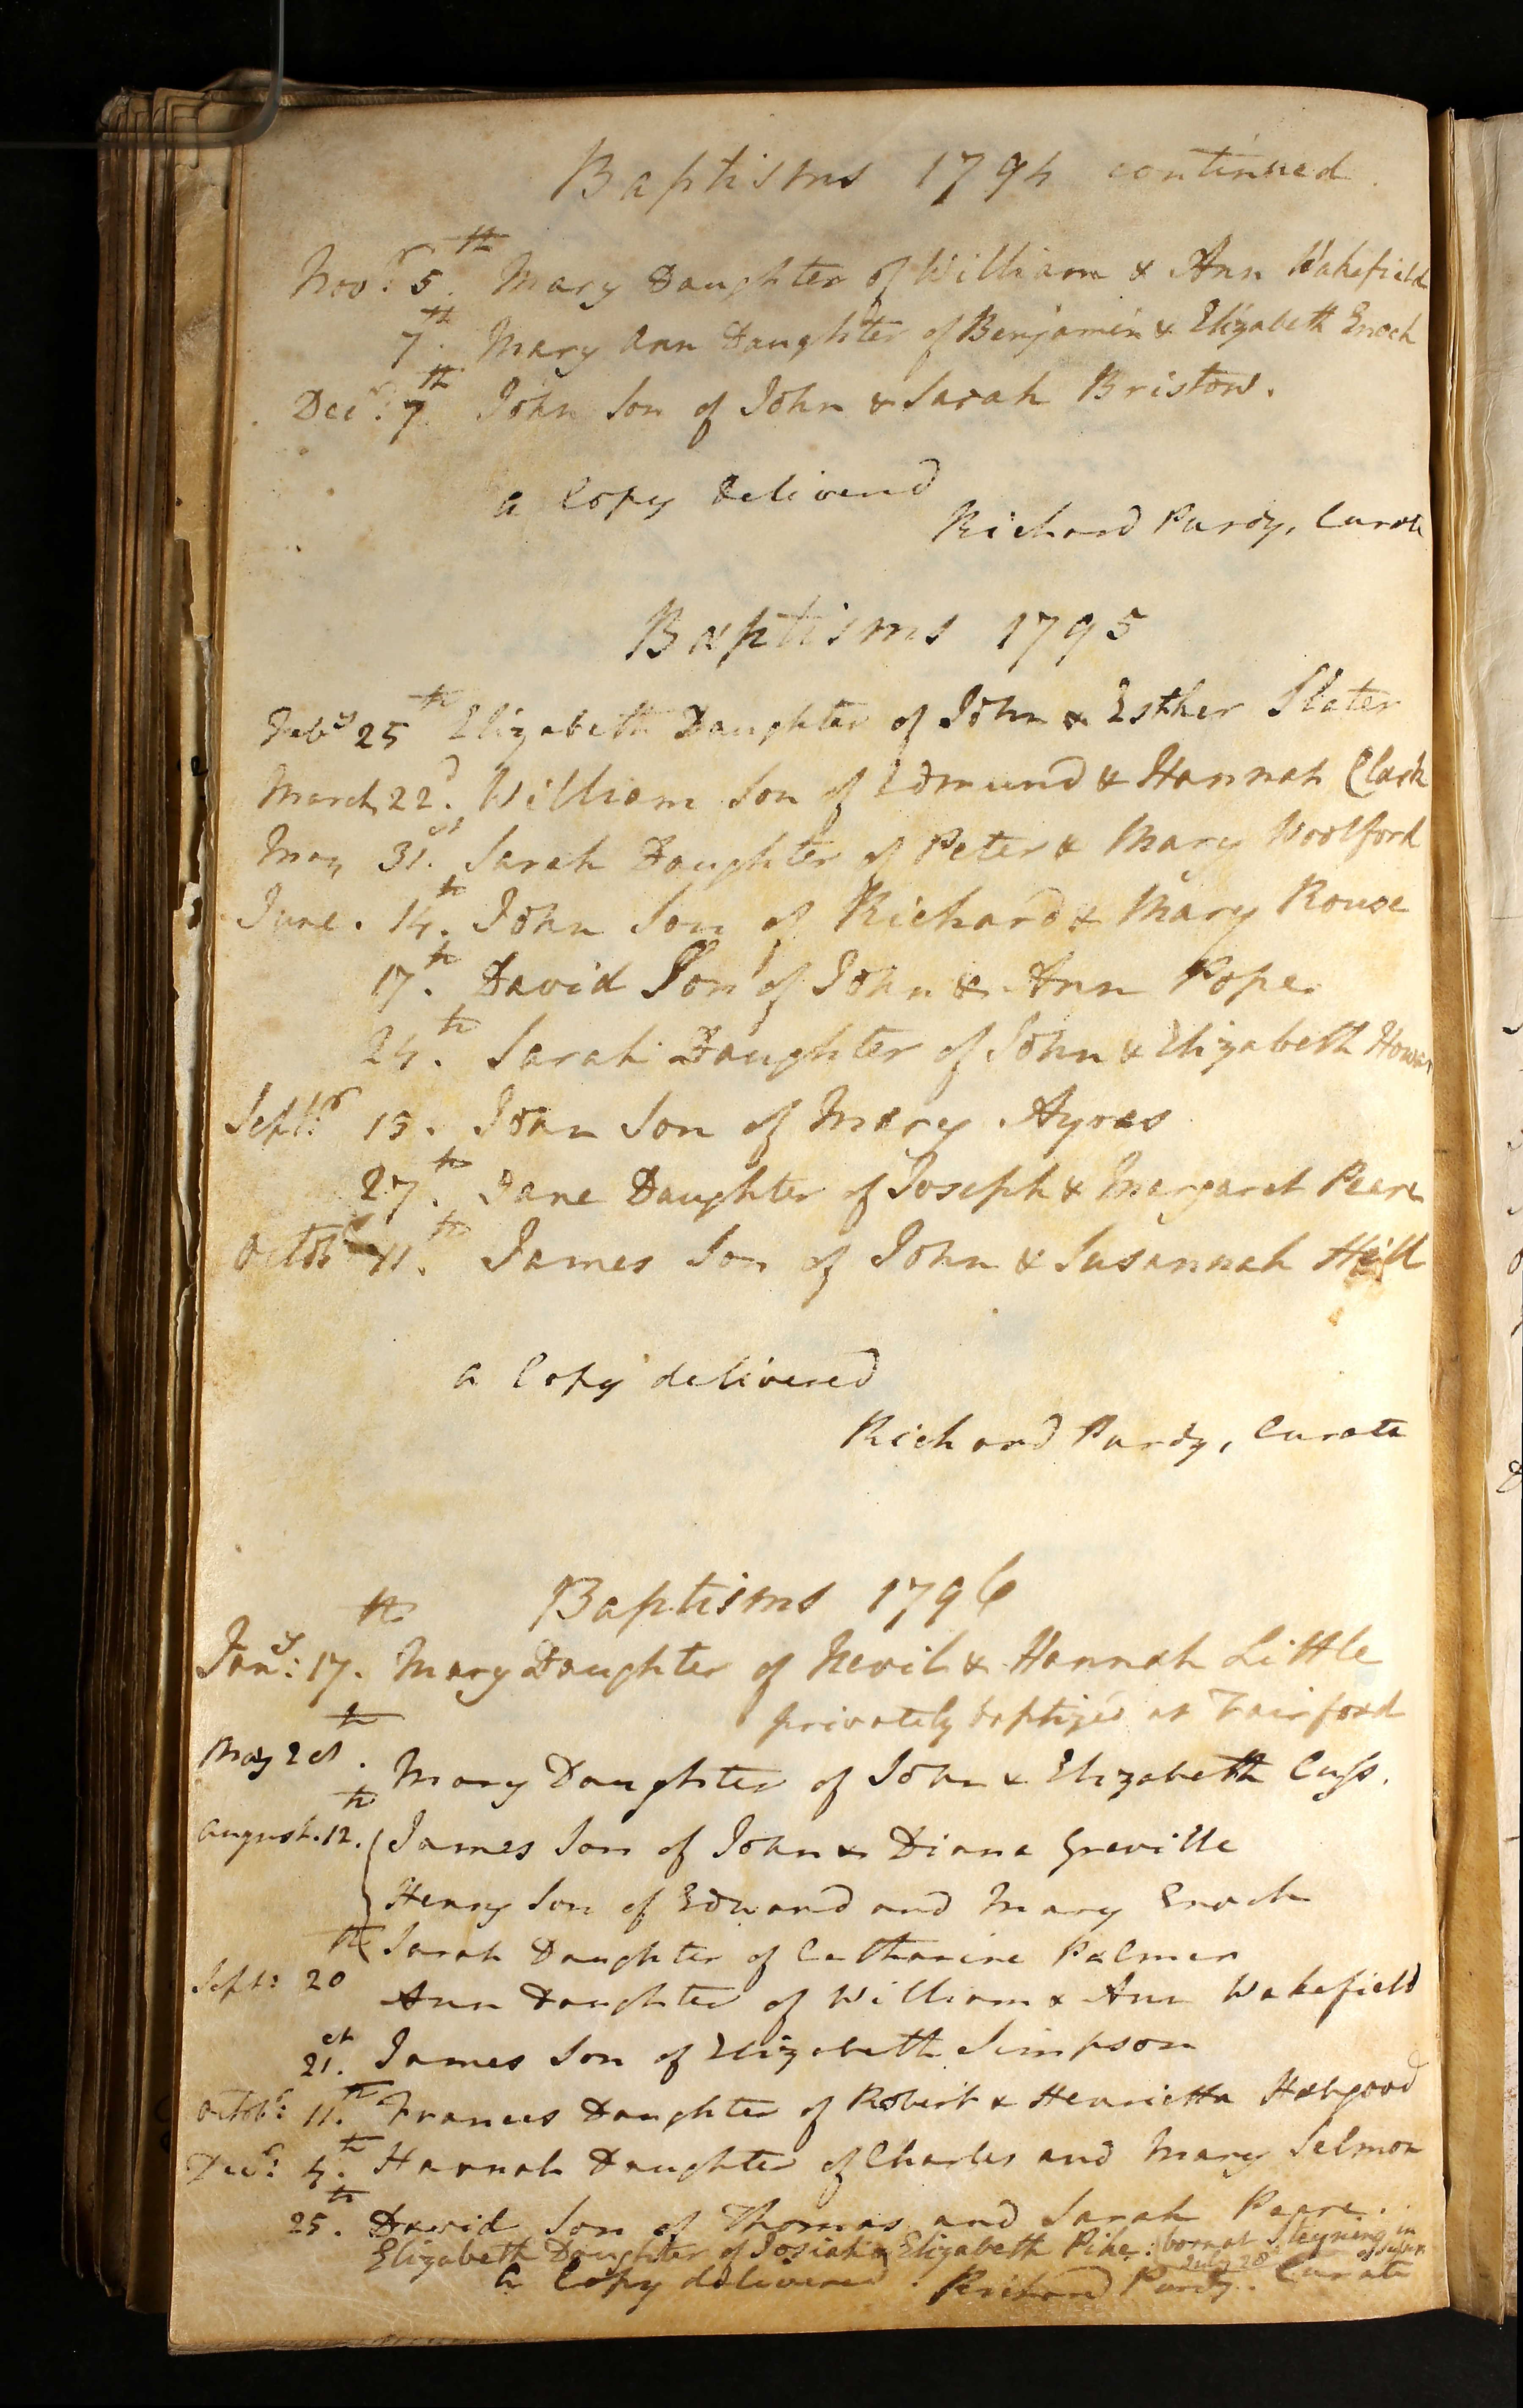 Baptisms 1794 continued.
Novr. 5th. Mary Daughter of William & Ann Wakefield
7th. Mary Ann Daughter of Benjamin & Elizabeth Enoch
Decr. 7th John Son of John & Sarah Bristow.
a Copy delivered
Richard Purdy, Curate
Baptisms 1795
Feby 25th Elizabeth Daughter of John & Esther Slater
March 22d. William Son of Edmund & Hannah Clark
May 31st. Sarah Daughter of Peter & Mary Woolford
June. 14th. John Son of Richard & Mary Rouse
17th. David Son of John & Ann Pope.
24th. Sarah Daughter of John & Elizabeth
Septr. 15. John Son of Mary Ayres
27th. Jane Daughter of Joseph & Margaret Peare
Octobr 11th. James Son of John & Susannah Hill
a Copy delivered
Richard Purdy, Curate
Baptisms 1796
Jany: 17th. Mary Daughter of Nevil & Hannah Little
privately baptized at Fairford
May Mary Daughter of John & Elizabeth Cuss.
August. 12th. James Son of John & Diana Greville
Henry Son of Edward and Mary Enoch
Sarah Daughter of Catharine Palmer
Sept: 20th Ann Daughter of William & Ann Wakefield
21st. James Son of Elizabeth Simpson
Octobr: 11th. Frances Daughter of Robert & Henrietta Habgood
Decr: 4th. Hannah Daughter of Charles and Mary Salmon
25th. David Son of Thomas and Sarah Peare.
Elizabeth Daughter of Josiah & Elizabeth Pike: (born at Steyning in
July 28 Sussex
a Copy delivered. Richard Purdy. Curate